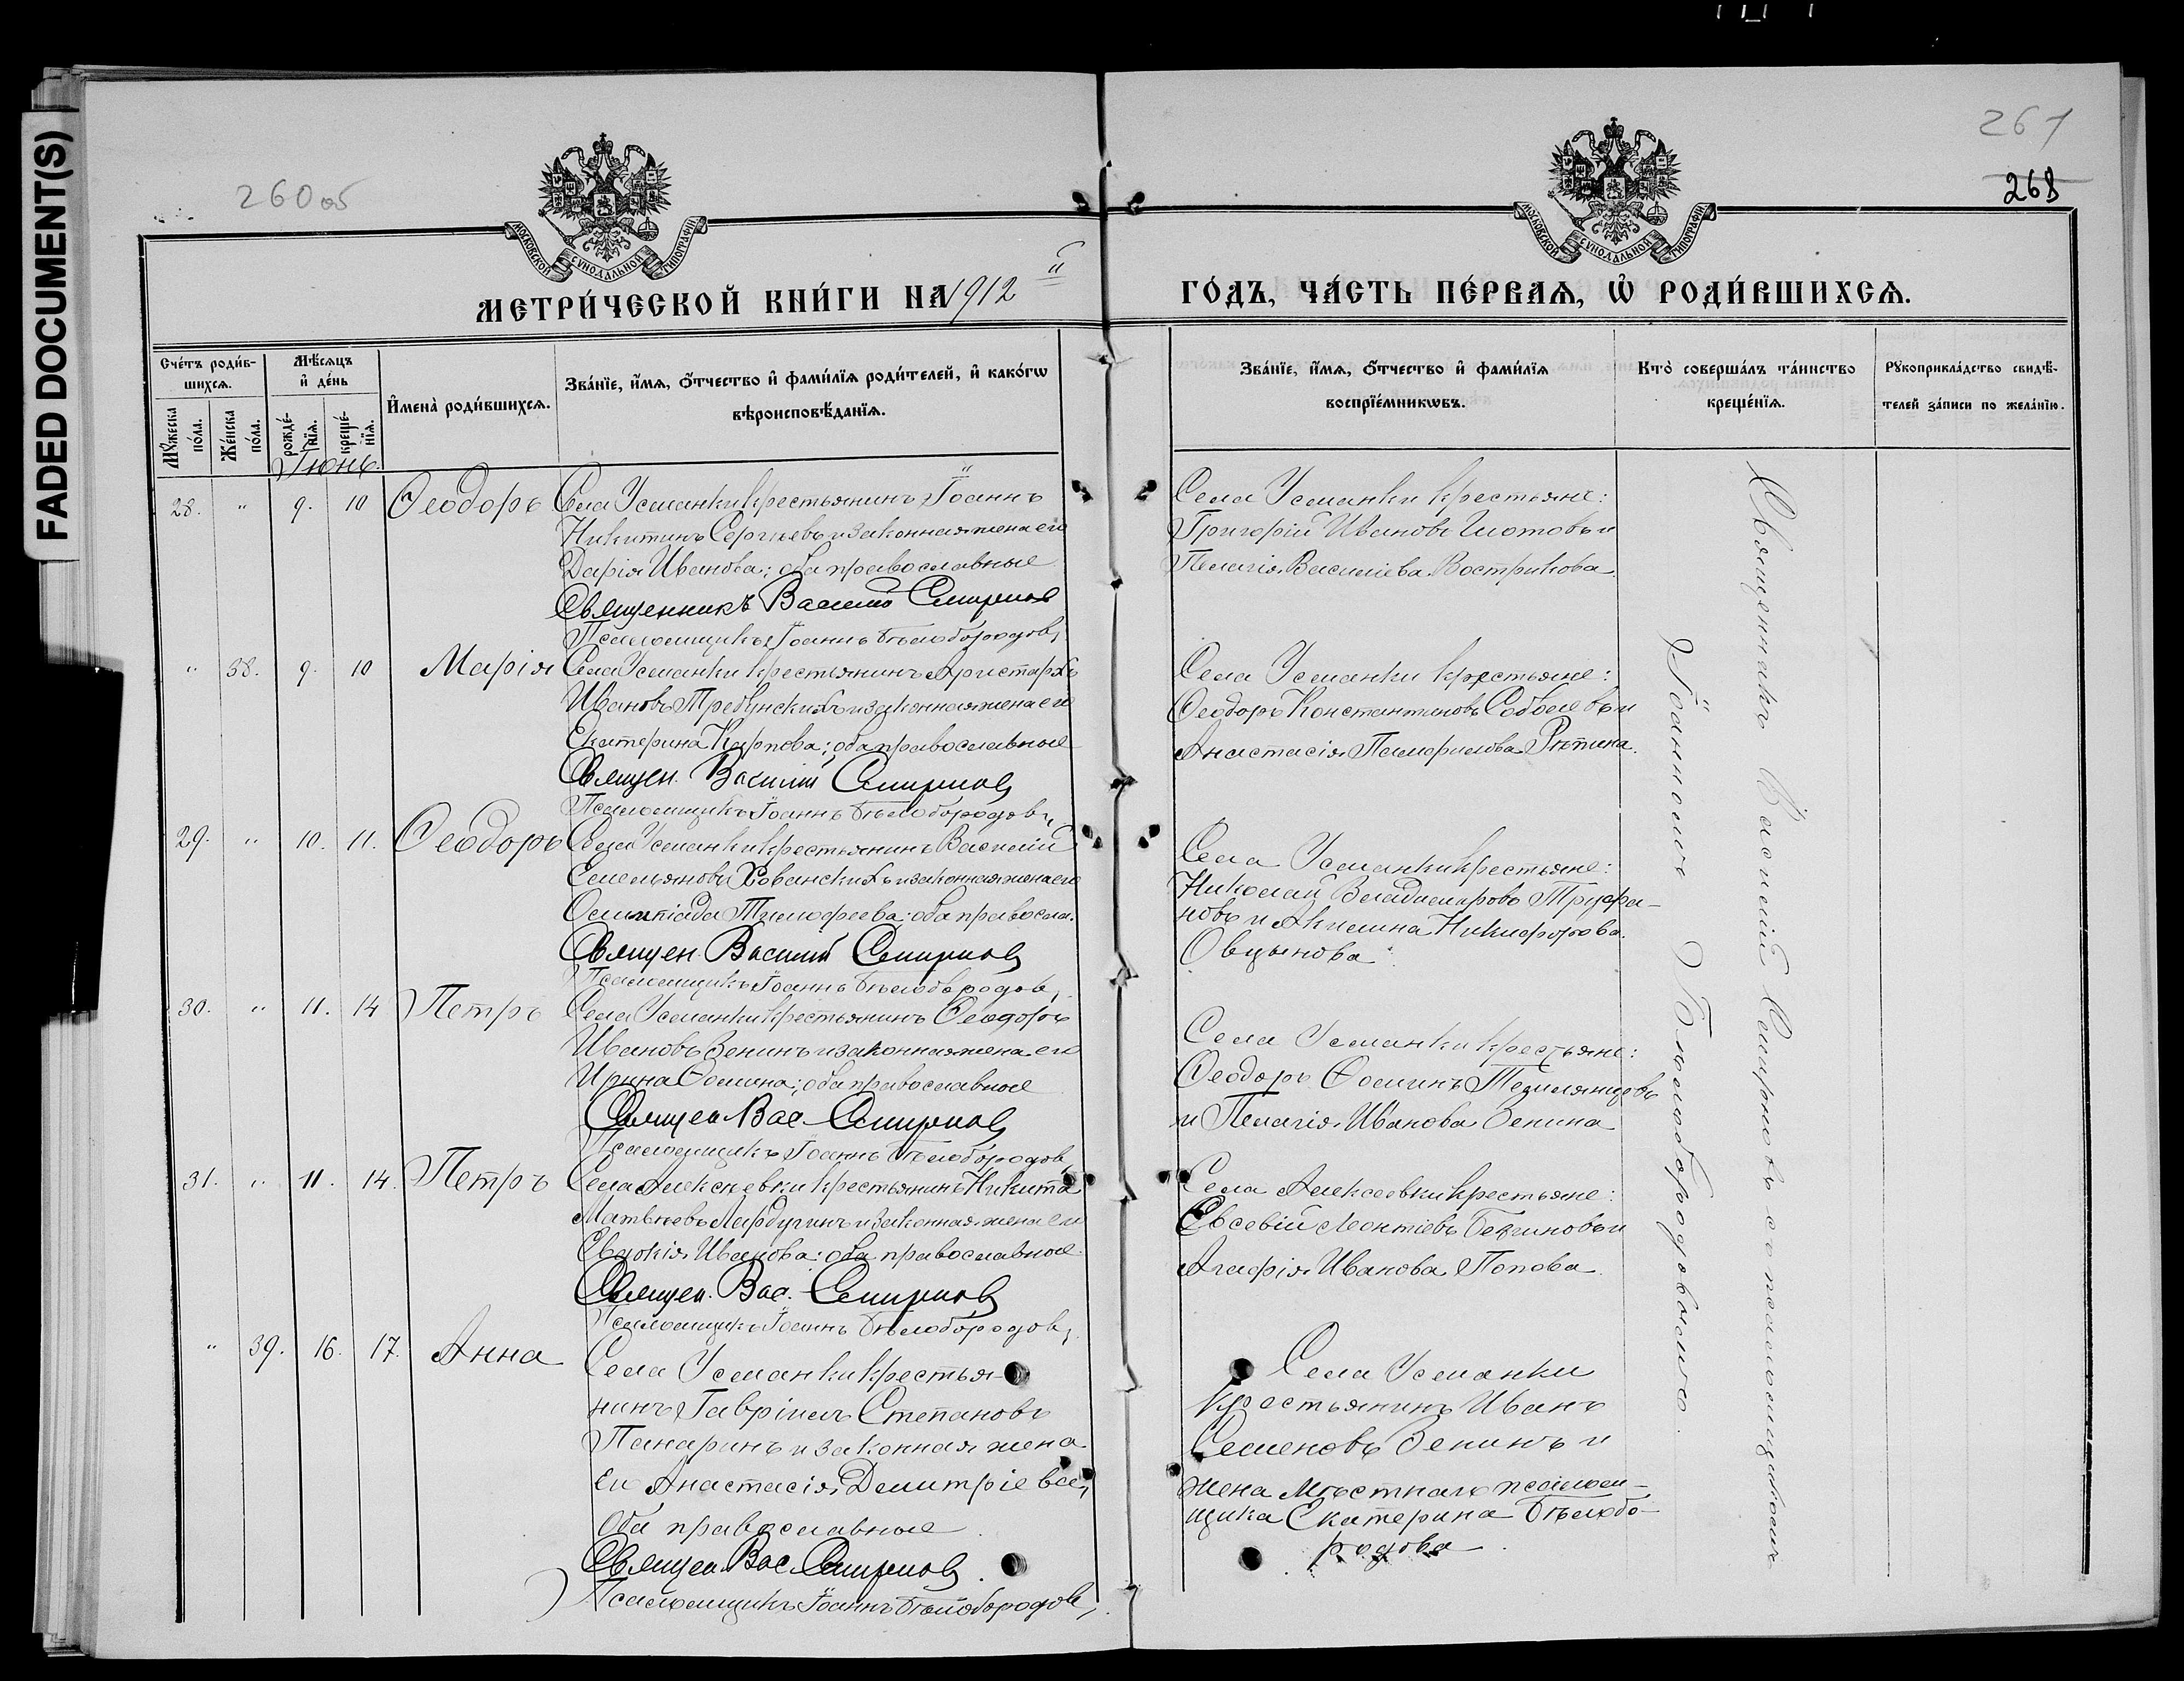 FADED DOCUMENT(S)
260об
261
268
МОСКОВСКОЙ СѴНОДАЛЬНОЙ ТИПОГРАФІИ
МОСКОВСКОЙ СѴНОДАЛЬНОЙ ТИПОГРАФІИ
МЕТРИ́ЧЕСКОЙ КНИ́ГИ НА 1912й
ГО́ДЪ, ЧА́СТЬ ПЕ́РВАѦ, Ѡ҆ РОДИ́ВШИХСѦ.
Сче́тъ роди́в-
шихсѧ.
Мꙋ́жеска
по́ла.
Же́нска
по́ла.
Мѣ́сѧцъ
и҆ де́нь
рожде́-
нїѧ.
креще́-
нїѧ.
И҆мена̀ роди́вшихсѧ.
Зва́нїе, и҆́мѧ, ѻ҆́тчество и҆ фами́лїѧ роди́телей, и҆ како́гѡ
вѣроисповѣ́данїѧ.
Зва́нїе, и҆́мѧ, ѻ҆́тчество и҆ фами́лїѧ
воспрїе́мникѡвъ.
Кто̀ соверша́лъ та́инство
креще́нїѧ.
Рꙋкоприкла́дство свидѣ́-
телей за́писи по жела́нїю.
Іюнь.
28. " 9. 10 Ѳеодоръ Села Усманки крестьянинъ Іоаннъ
Никитинъ Сергѣевъ и законная жена его
Дарія Иванова; оба православные
Священникъ Василій Смирнов
Псаломщикъ Іоаннъ Бѣлобородов,
Села Усманки крестьяне:
Григорій Ивановъ и
Пелагія Васильева Вострикова.
" 38. 9. 10 Марія Села Усманки крестьянинъ Аристархъ
Ивановъ Требунскихъ и законная жена его
Екатерина Карпова; оба православные
Священ. Василій Смирнов
Псаломщикъ Іоаннъ Бѣлобородовъ,
Села Усманки крестьяне:
Ѳеодоръ Константиновъ Соболевъ и
Анастасія Памфилова Рѣпина.
29. " 10. 11. Ѳеодоръ Села Усманки крестьянинъ Василій
Емельяновъ Хованскихъ и законная жена его
Олимпіада Тимофеева: оба правосла.
Священ. Василій Смирнов
Псаломщикъ Іоаннъ Бѣлобородов,
Села Усманки крестьяне:
Николай Владимировъ Труфа-
новъ и Акилина Никифорова
Овцынова.
30. " 11. 14 Петръ Села Усманки крестьянинъ Ѳеодоръ
Ивановъ Зенинъ и законная жена его
Ирина Ѳомина; оба православные
Священ. Вас. Смирнов
Псаломщикъ Іоаннъ Бѣлобородов,
Села Усманки крестьяне:
Ѳеодоръ Ѳоминъ
и Пелагія Иванова Зенина
31. " 11. 14. Петръ Села Алексѣевки крестьянинъ Никита
Матвѣевъ и законная жена его
Евдокія Иванова: оба православные
Священ. Вас. Смирнов
Псаломщикъ Іоаннъ Бѣлобородов,
Села Алексѣевки крестьяне:
Евсевій Леонтіевъ и
Агафія Иванова Попова.
" 39. 16. 17. Анна Села Усманки крестья-
нинъ Гавріилъ Степановъ
Панаринъ и законная жена
его Анастасія Димитріева,
оба православные
Священ. Вас. Смирнов.
Псаломщикъ Іоаннъ Бѣлобородов,
Села Усманки
крестьянинъ Иванъ
Семеновъ Зенинъ и
жена мѣстнаго псалом-
щика Екатерина Бѣлобо-
родова.
Священникъ Василій Смирновъ съ псаломщикомъ
Іоанномъ Бѣлобородовымъ.